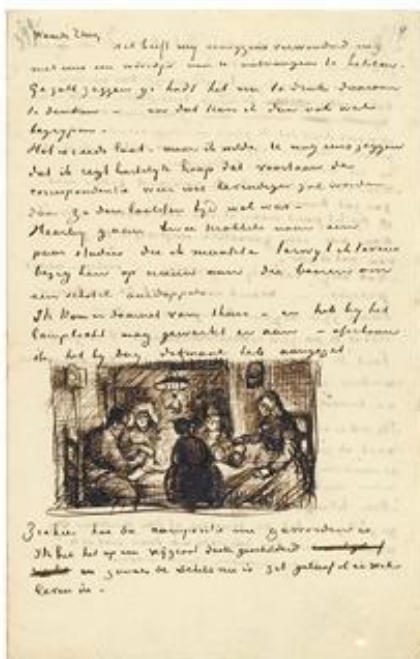 Waarde Theo,
Het heeft mij eenigzins verwonderd nog
niet eens een woordje van U ontvangen te hebben.
Ge zult zeggen ge hadt het nu te druk daaraan
te denken – en dat kan ik dan ook wel
begrypen –
Het is reeds laat – maar ik wilde U nog eens zeggen
dat ik regt hartelyk hoop dat voortaan de
correspondentie weer wat levendiger zal worden
dan ze den laatsten tyd wel was –
Hierby gaan twee krabbels naar een
paar studies die ik maakte terwyl ik tevens
bezig ben op nieuw aan die boeren om
een schotel aardappels
Ik kom er daarnet van thuis – en heb by het
lamplicht nog gewerkt er aan – ofschoon
ik het by dag ditmaal heb aangezet
Ziehier hoe de compositie nu geworden is
Ik heb het op een vry groot doek geschilderd
en zooals de schets nu is zit geloof ik er wel
leven in –